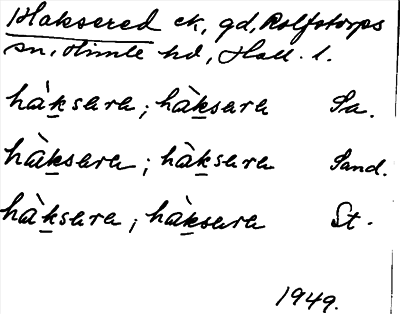 Haksered ek, gd, Rolfstorps
sn, Himle hd, Hall. l.
hàksara; hàksara Sa.
hàksara; hàksara Sand.
hàksara; hàksara St.
1949.